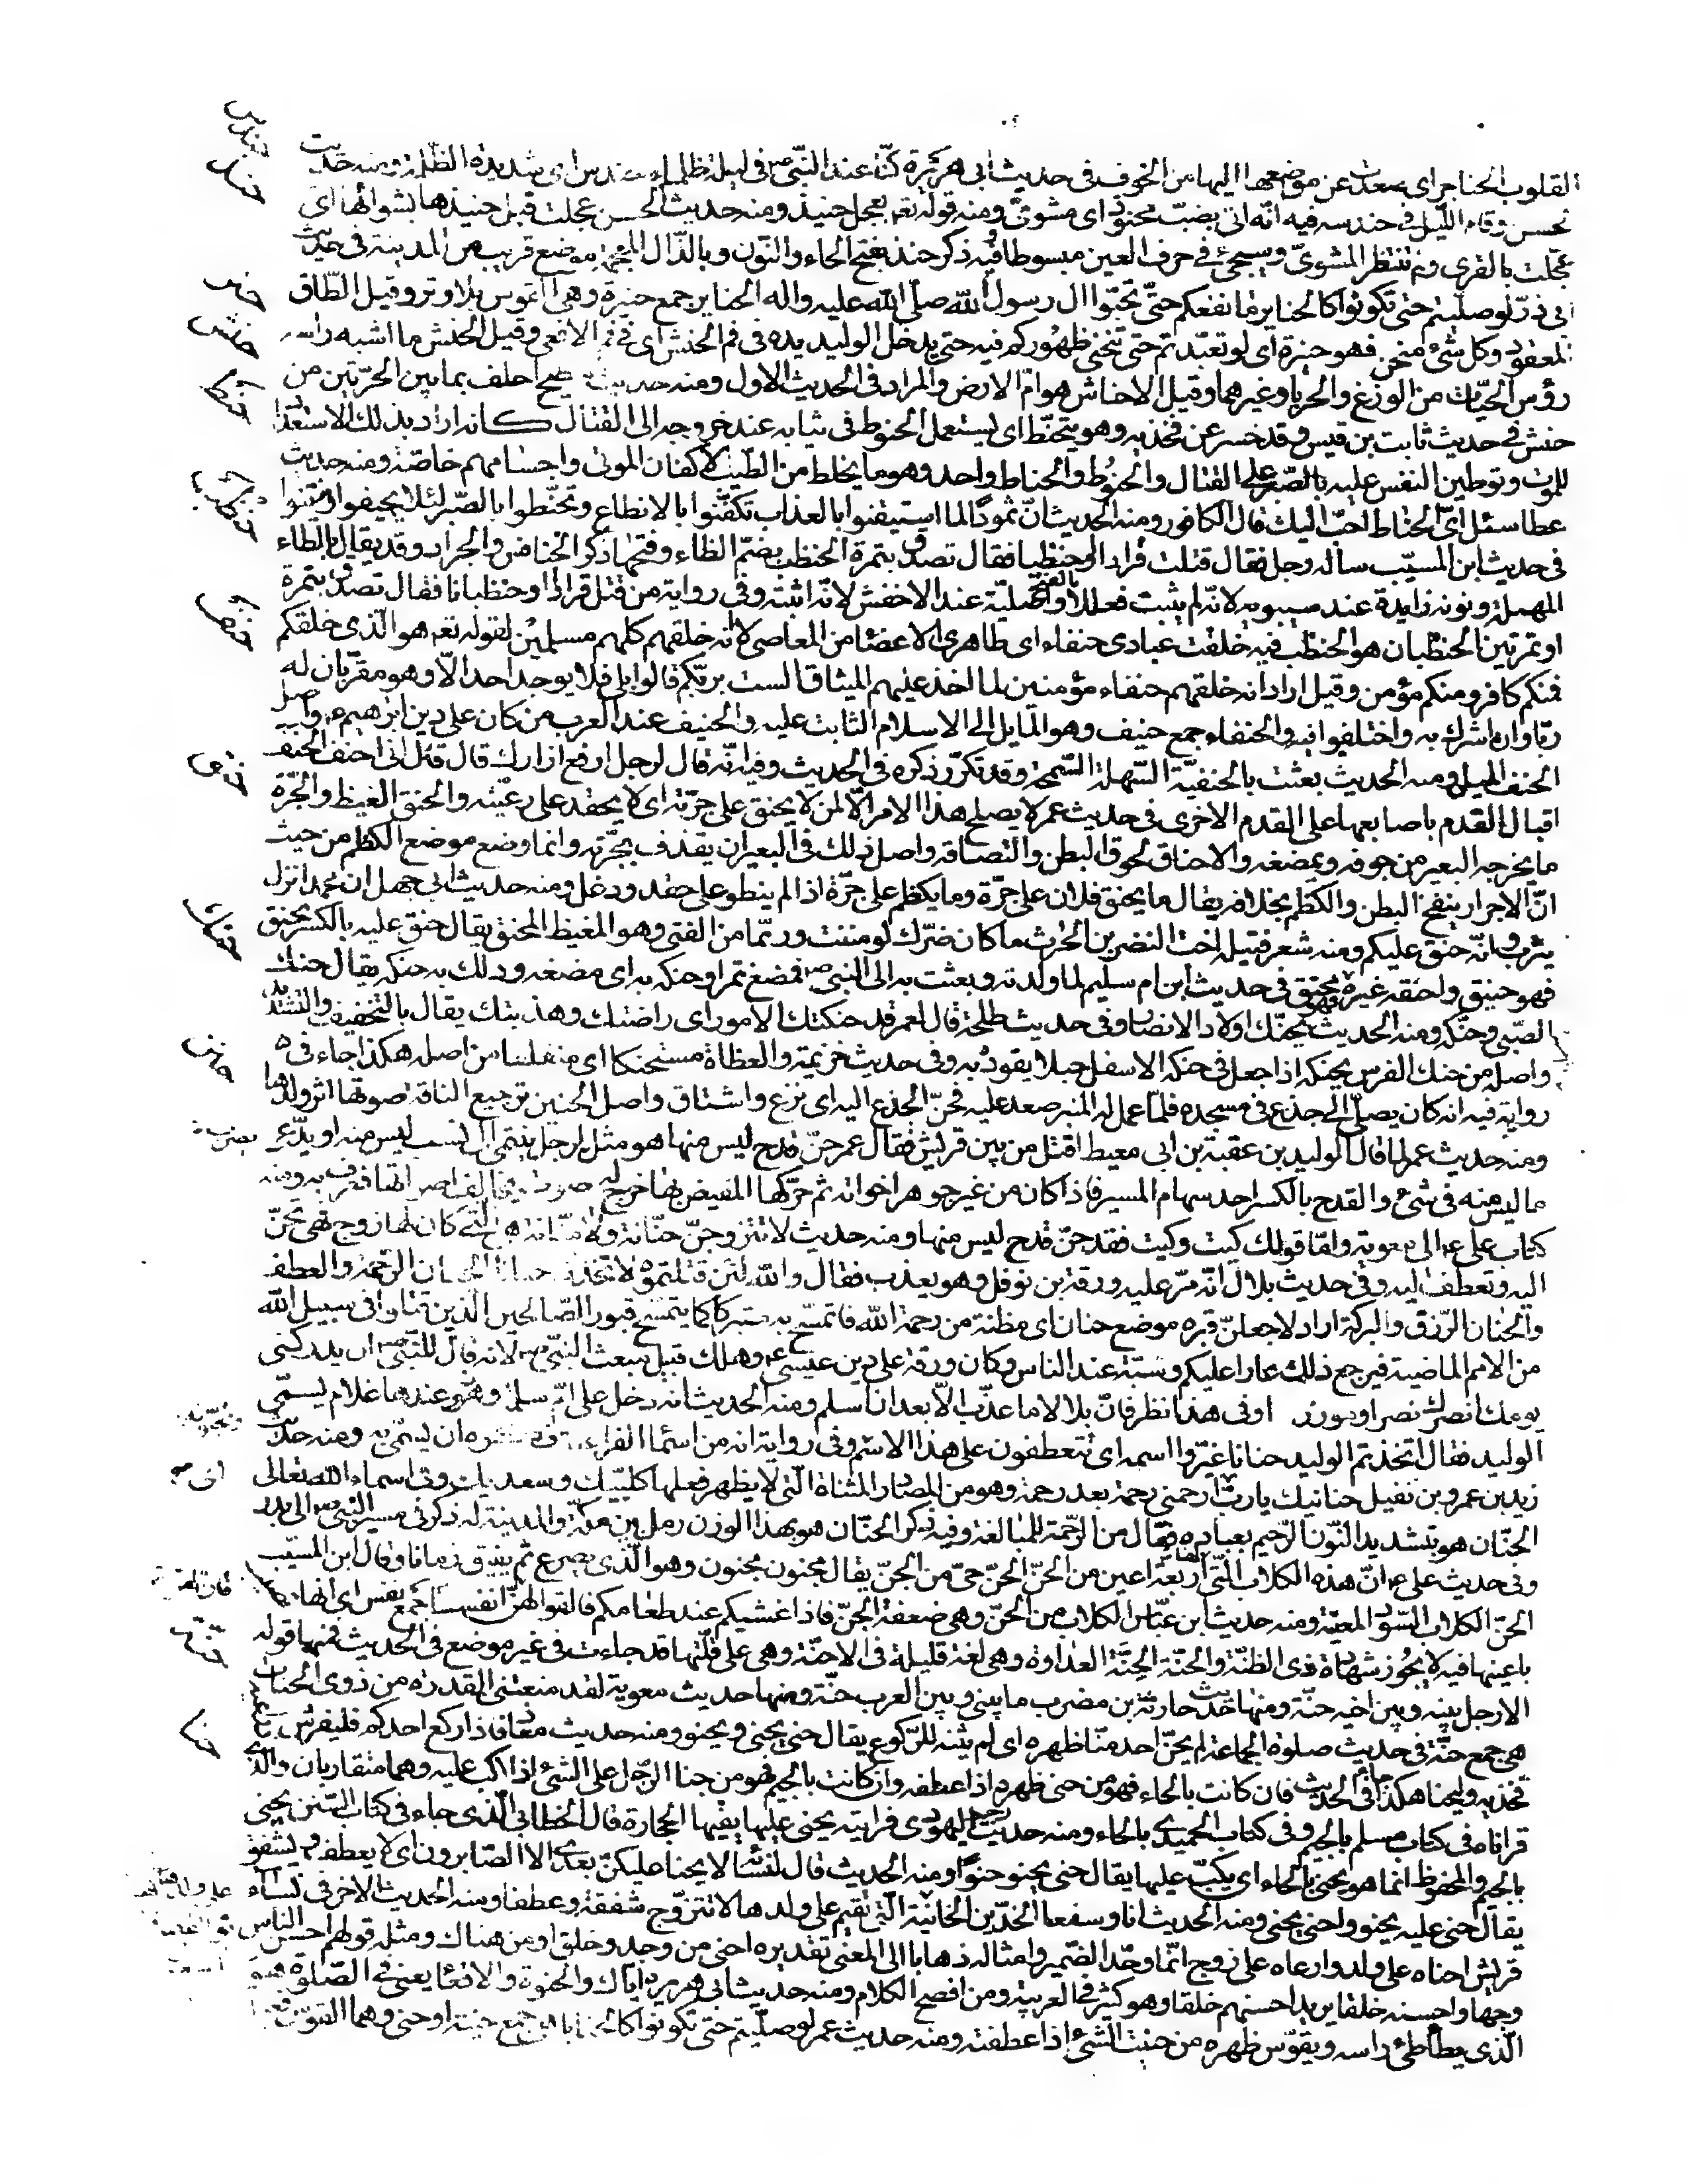 القلوب الحناجر اى صعدت عن مواضعها اليها من الخوف فى حديث ابى هريرة كنّا عند النّبىّ ص فى ليلة ظلماء حندس اى شديدة الظلمة ومنه حديث
الحسن وقام اللّيل فى حندسه فيه انّه اتى بضبّ محنوذ اى مشوىّ ومنه قوله تعم بعجل حنيذ ومنه حديث الحسن عجلت قبل حنيذها بشوائها اى
عجّلت بالقرى ولم تنتظر المشوىّ وسيجىء فى حرف العين مبسوطا وفيه ذكر حنذ بفتح الحاء والنّون وبالذّال المعجمة موضع قريب من المدينة فى حديث
ابى ذرّ لو صلّيتم حتى تكونوا كالحناير ما نفعكم حتّى تحبّوا ال رسول الله صلّى الله عليه واله الحناير جمع حنيرة وهى القوس بلا وتر وقيل الطّاق
المعقود وكل شىء منحن فهو حنيرة اى لو تعبّدتم حتى تنحنى ظهوركم فيه حتى يدخل الوليد يده فى فم الحنش اى فى فم الافعى وقيل الحنش ما اشبه راسه
رؤس الحيّات من الوزغ والحربا وغيرهما وقيل الاحناش هوامّ الارض والمراد فى الحديث الاول ومنه حديث سطيح احلف بما بين الحرّتين من
حنش فى حديث ثابت بن قيس وقد حسر عن فخذيه وهو يتحنّط اى يستعمل الحنوط فى ثيابه عند خروجه الى القتال كانه اراد بذلك الاستعداد
للموت وتوطين النفس عليه بالصّبر على القتال والحنوط والحناط واحد وهو ما يخلط من الطّيب لاكفان الموتى واجسامهم خاصّة ومنه حديث
عطا سئل اىّ الحناط احبّ اليك قال الكافور ومنه الحديث انّ ثمودا لما استيقنوا بالعذاب تكفّنوا بالانطاع وتحنّطوا بالصّبر لئلا يجيفوا وينتنوا
فى حديث ابن المسيّب ساله رجل فقال قتلت قرادا او حنظبا فقال تصدّق بتمرة الحنظب بضمّ الظاء وفتحها ذكر الخنافس والجراد وقد يقال بالطاء
المهملة ونونه زايدة عند سيبويه لانّه لم يثبت فعللا بالفتح واصلية عند الاخفش لانّه اثبته وفى رواية من قتل قرادا او حنظبانا فقال تصدّق بتمرة
او تمرتين الحنظبان هو الحنظب فيه خلقت عبادى حنفاء اى طاهرى الاعضاء من المعاصى لا انه خلقهم كلهم مسلمين لقوله تعم هو الّذى خلقكم
فمنكم كافر ومنكم مؤمن وقيل اراد انه خلقهم حنفاء مؤمنين لما اخذ عليهم الميثاق الست بربّكم قالوا بلى فلا يوجد احد الّا وهو مقرّ بان له
ربّا وان اشرك به واختلفوا فيه والحنفاء جمع حنيف وهو المايل الى الاسلام الثابت عليه والحنيف عند العرب من كان على دين ابرهيم ع واصل
الحنف الميل ومنه الحديث بعثت بالحنفيّة السّهلة السّمحة وقد تكرّر ذكره فى الحديث وفيه انّه قال لرجل ارفع ازارك قال قئل انى احنف الحنف
اقبال القدم باصابعها على القدم الاخرى فى حديث عمر لا يصلح هذا الامر الّا لمن لا يحنق على جرّته اى لا يحقد على رعيّته والحنق الغيظ والجرّة
ما يخرجه البعير من جوفه ويمضغه والاحناق لحوق البطن والتصاقه واصل ذلك فى البعير ان يقذف بجرّته وانما وضع موضع الكظم من حيث
انّ الاجترار ينفخ البطن والكظم بخلافه يقال ما يحنق فلان على جرّة وما يكظم على جرّة اذا لم ينطو على حقد ودغل ومنه حديث ابى جهل ان محمدا نزل
يثرب وانّه حنق عليكم ومنه شعر قتيلة اخت النضر بن الحرث ما كان ضرّك لو مننت وربّما من الفتى وهو المغيظ المحنق يقال حنق عليه بالكسر يحنق
فهو حنق واحنقه غيره فهو محنق فى حديث ابن ام سليم لما ولدته وبعثت به الى النبى ص فمضغ تمرا وحنكه به اى مضغه ودلك به حنكه يقال حنك
الصّبى وحنّكه ومنه الحديث يحنّك اولاد الانصار وفى حديث طلحة قال لعمر قد حنكتك الامور اى راضتك وهذبتك يقال بالتخفيف والتشديد
واصله من حنك الفرس يحنكه اذا جعل فى حنكه الاسفل حبلا يقوده به وفى حديث خزيمة والعظاة مستحنكا اى منقلعا من اصله هكذا جاء فى
رواية فيه انه كان يصلّى الى جذع فى مسجده فلمّا عمل له المنبر صعد عليه فحنّ الجذع اليه اى نزع واشتاق واصل الحنين ترجيع الناقة صوتها اثر ولدها
ومنه حديث عمر لما قال الوليد بن عقبة بن ابى معيط اقتل من بين قريش فقال عمر حنّ قدح ليس منها هو مثل لرجل ينتمى الى نسب ليس منه او يدّعى
ما ليس منه فى شىء والقدح بالكسر احد سهام الميسر فاذا كان من غير جوهر اخواته ثم حرّكها المفيض بها خرج له صوت يخالف اصواتها فعرف به ومنه
كتاب على ع الى معوية وامّا قولك كيت وكيت فقد حنّ قدح ليس منها ومنه حديث لا تتزوجنّ حنّانة ولا منّانة هى الّتى كان لها زوج فهى تحنّ
اليه وتعطف اليه وفى حديث بلال انّه مرّ عليه ورقة بن نوفل وهو يعذب فقال والله لئن قتلتموه لا تخذنه حنانا الحنان الرّحمة والعطف
والحنان الرّزق والبركة اراد لاجعلنّ قبره موضع حنان اى مظنة من رحمة الله فاتمسّح به متبركا كما يتمسّح بقبور الصّالحين الّذين قتلوا فى سبيل الله
من الامم الماضية فيرجع ذلك عارا عليكم وسبّة عند الناس وكان ورقة على دين عيسى ع وهلك قبيل مبعث النبىّ ص لانه قال للنّبىّ ص ان يدركنى
يومك انصرك نصرا موزرا وفى هذا نظر فانّ بلالا ما عذّب الّا بعد ان اسلم ومنه الحديث انه دخل على امّ سلمة وعندها غلام يسمّى
الوليد فقال اتخذتم الوليد حنانا غيّروا اسمه اى تتعطفون على هذا الاسم وفى رواية انه من اسماء الفراعنة فكره ان يسمّى به ومنه حديث
زيد بن عمرو بن نفيل حنانيك يا ربّ اى ارحمنى رحمة بعد رحمة وهو من المصادر المثناة الّتى لا يظهر فعلها كلبيّك وسعديك وفى اسماء الله تعالى
الحنّان هو بتشديد النّون الرّحيم بعباده فعّال من الرّحمة للمبالغة وفيه ذكر الحنّان هو بهذا الوزن رمل بين مكّة والمدينة له ذكر فى مسير النبى ص الى بدر
وفى حديث على ع انّ هذه الكلاب الّتى لها اربعة اعين من الحنّ الحنّ حىّ من الجنّ يقال مجنون محنون وهو الّذى يصرع ثم يفيق زمانا وقال ابن المسيّب
الحنّ الكلاب السّود المعيّنة ومنه حديث ابن عبّاس الكلاب من الحنّ وهى ضعفة الجنّ فاذا غشيكم عند طعامكم فالقوا لهنّ فانّ لهنّ انفسا جمع نفس اى انها تصيب
باعينها فيه لا يجوز شهادة ذى الظنّة والحنّة الحنّة العداوة وهى لغة قليلة فى الاحنّة وهى على قلّتها قد جاءت فى غير موضع فى الحديث فمنها قوله
الا رجل بينه وبين اخيه حنّة ومنها حديث حارثة بن مضرب ما بينى وبين العرب حنّة ومنها حديث معوية لقد منعتنى القدرة من ذوى الحنات
هى جمع حنة فى حديث صلوة الجماعة لم يحن احد منّا ظهره اى لم يثنه للرّكوع يقال حنى يحنى ويحنو ومنه حديث معاذ اذا ركع احدكم فليفرش ذراعيه
فخذيه وليحنا هكذا جاء فى الحديث فان كانت بالحاء فهو من حنى ظهره اذا عطفه وان كانت بالجيم فهو من جنا الرّجل على الشىء اذا اكب عليه وهما متقاربان والّذى
قراناه فى كتاب مسلم بالجيم وفى كتاب الحميدى بالحاء ومنه حديث رجم اليهودى فرايته يحنى عليها يقيها الحجارة قال الخطابى الّذى جاء فى كتاب السّنن يجنى
بالجيم والمحفوظ انما هو يحنى بالحاء اى يكبّ عليها يقال حنى يحنو حنوّا ومنه الحديث قال لنسائه لا يحنا عليكنّ بعدى الا الصّابرون اى لا يعطف ويشفق
يقال حنى عليه يحنو واحنى يحنى ومنه الحديث انا وسفعا الخدّين الحانية الّتى تقيم على ولدها لا تتزوّج شفقة وعطفا ومنه الحديث الاخر فى نساء
قريش احناه على ولد وارعاه على زوج انّما وحّد الضّمير وامثاله ذهابا الى المعنى تقديره احنى من وجد وخلق او من هناك ومثله قولهم احسن الناس
وجها واحسنه خلقا يريد احسنهم خلقا وهو كثير فى العربية ومن افصح الكلام ومنه حديث ابى هريرة اياك والحنوة والاقعا يعنى فى الصّلوة هو
الّذى يطاطئ راسه ويقوّس ظهره من حنيت الشىء اذا عطفته ومنه حديث عمر لو صلّيتم حتى تكونوا كالحنايا هى جمع حنيّة او حنى وهما القوس
حندس
حنذ
حنر
حنش
حنط
حنظب
حنف
حنق
حنك
حنن
حنّة
حنا